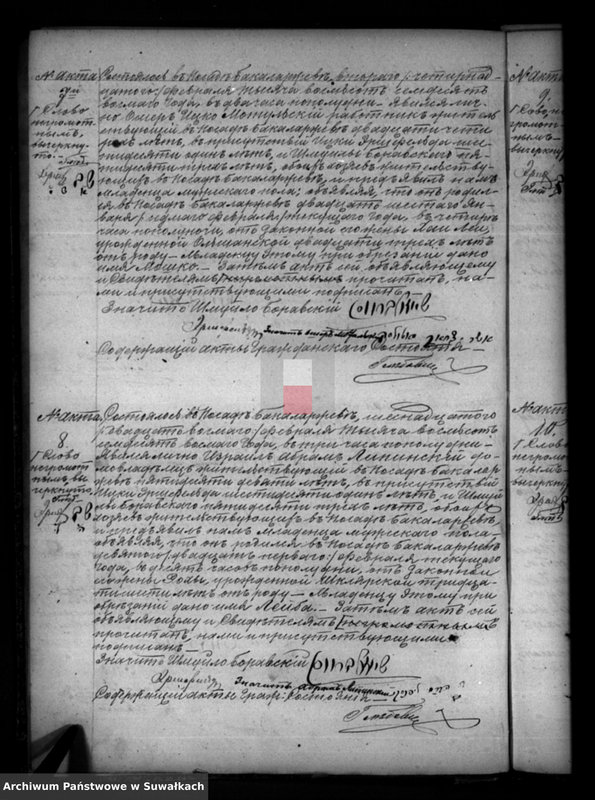 № акта
1 Слово
неграмот
нымъ
вычеркну
то.
Состоялось въ Посадѣ Бакаларжевѣ, втораго / четырнад
цатого / Февраля тысяча восемьсотъ семдесятъ
восмаго года, въ два часа пополудни. Явился лич
но Ошеръ Ицко Мотульскій работникъ жительст
вующій въ Посадѣ Бакаларжевѣ двадцати четы
рехъ лѣтъ, въ присутствіи Ицки Эрцфельда шес
тидесяти одинъ лѣтъ, и Шмуйлы Боравскаго пя
тидесяти трехъ лѣтъ, обоихъ жительству
ющихъ въ Посадѣ Бакаларжевѣ, и предъявилъ намъ
младенца мужескаго пола; объявляя, что онъ родил
ся въ Посадѣ Бакаларжевѣ двадцать шестаго Ян
варя / седмаго Февраля / текущаго года, въ четыре
часа пополуночи, отъ законной его жены Хаи Леи,
урожденной Ольшанской двадцати трехъ лѣтъ
отъ роду. — Младенцу этому при обрѣзаніи дано
имя Мошко. — Затѣмъ актъ сей объявляющему
и Свидѣтелямъ неграмотнымъ прочитанъ, на
ми и присутствующими подписанъ.
Значитъ Шмуйло Боравскій
Содержащій акты Гражданскаго Состоянія —
№ акта
8.
1 Слово
неграмот
нымъ вы
черкнуто
Состоялось въ Посадѣ Бакаларжевѣ, шестнадцатого
/ двадцать восмаго / Февраля тысяча восемьсотъ
семдесятъ восмаго года, въ три часа пополудни.
Явился лично Израиль Абрамъ Липинскій до
мовладѣлецъ жительствующій въ Посадѣ Бакалар
жевѣ пятидесяти девяти лѣтъ, въ присутствіи
Ицки Эрцфельда шестидесяти одинъ лѣтъ и Шмуй
лы Боравскаго пятидесяти трехъ лѣтъ, обоихъ
жительствующихъ въ Посадѣ Бакаларжевѣ,
и предъявилъ намъ младенца мужескаго пола
объявляя, что онъ родился въ Посадѣ Бакаларжевѣ
девятого / двадцать перваго / Февраля текущаго
года, въ десять часовъ пополудни, отъ законной
его жены Рохи, урожденной Шклярской тридца
ти шести лѣтъ отъ роду — Младенцу этому при
обрѣзаніи дано имя Лейба. — Затѣмъ актъ сей
объявляющему и Свидѣтелямъ неграмотнымъ
прочитанъ, нами и присутствующими
подписанъ —
Значитъ Шмуйло Боравскій
Значитъ Абрамъ Липинскій
Содержащій акты Граж: Состоянія —
№ акта
9
1 Слово не
грамот
нымъ
вычеркну
№ акта
10.
1 Слово
неграмот
нымъ
вычеркну
Archiwum Państwowe w Suwałkach